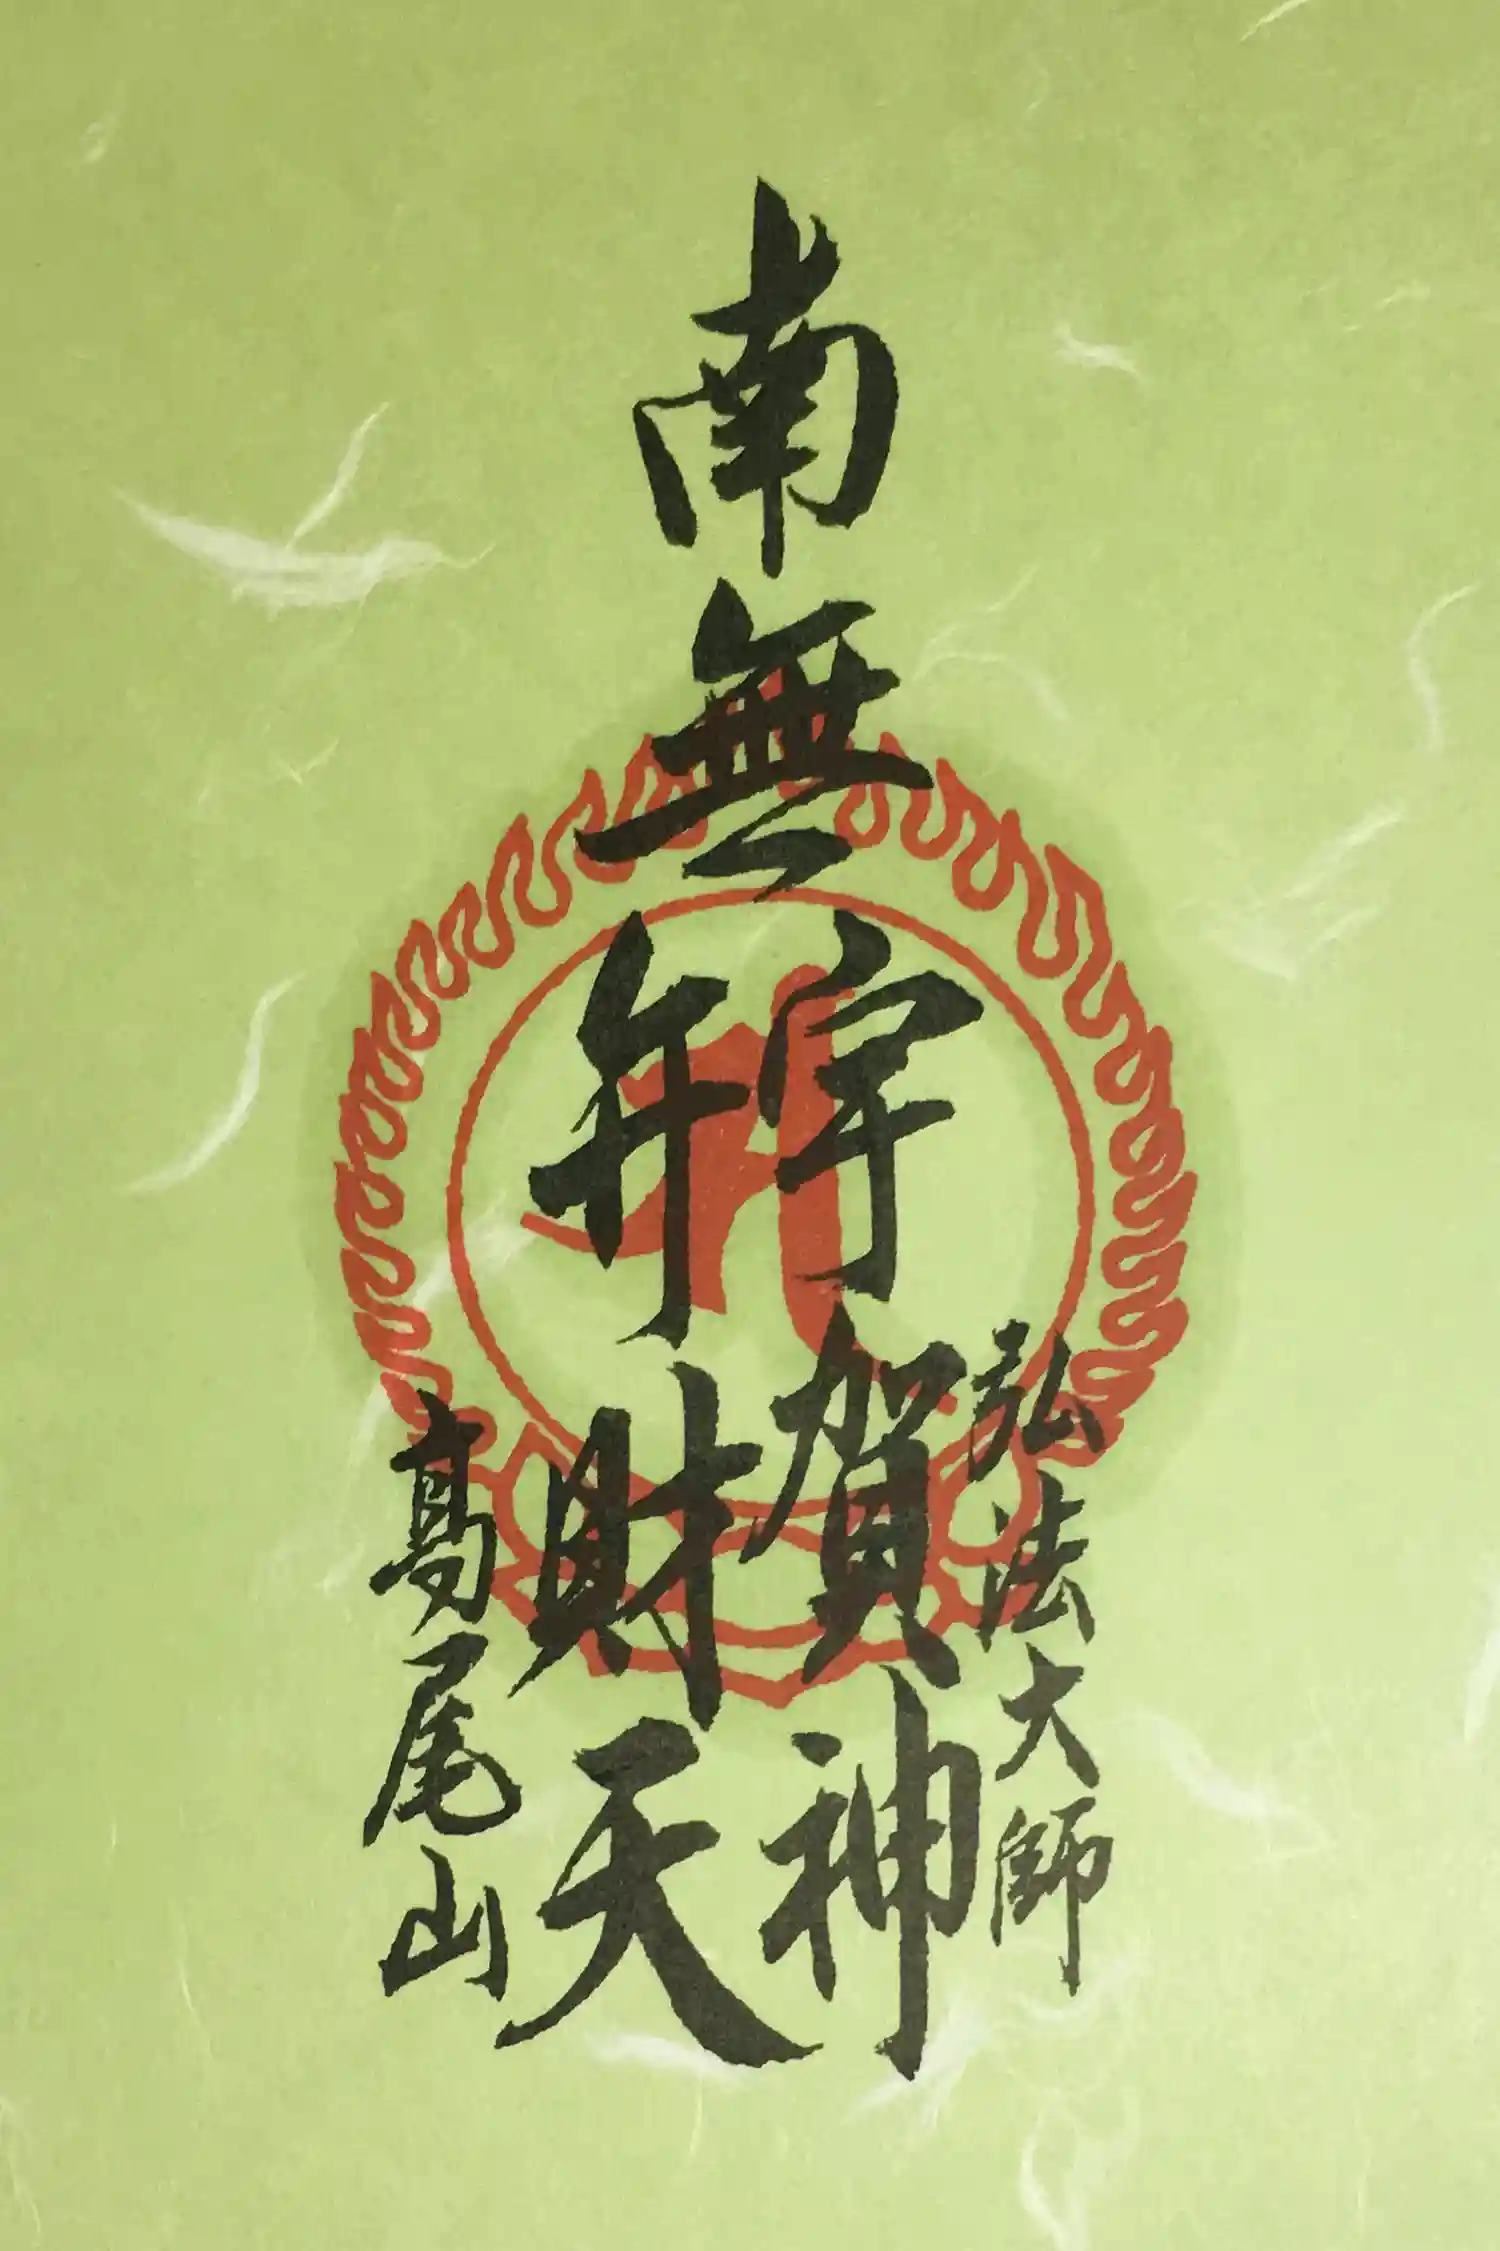 南無
宇賀神
弁財天
弘法大師
高尾山